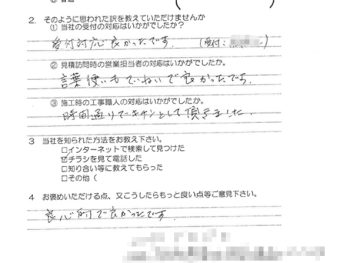 2. そのように思われた訳を教えていただけませんか
① 当社の受付の対応はいかがでしたか?
受付対応良かったです。 (受付:
② 見積訪問時の営業担当者の対応はいかがでしたか。
言葉使いもていねいで良かったです。
③ 施工時の工事職人の対応はいかがでしたか。
時間通りでキチンとして頂きました。
3 当社を知られた方法をお教え下さい。
□インターネットで検索して見つけた
☑チラシを見て電話した
□知り合い等に教えてもらった
□その他 (
4 お褒めいただける点、又こうしたらもっと良い点等ご意見下さい。
良心的で良かったです。